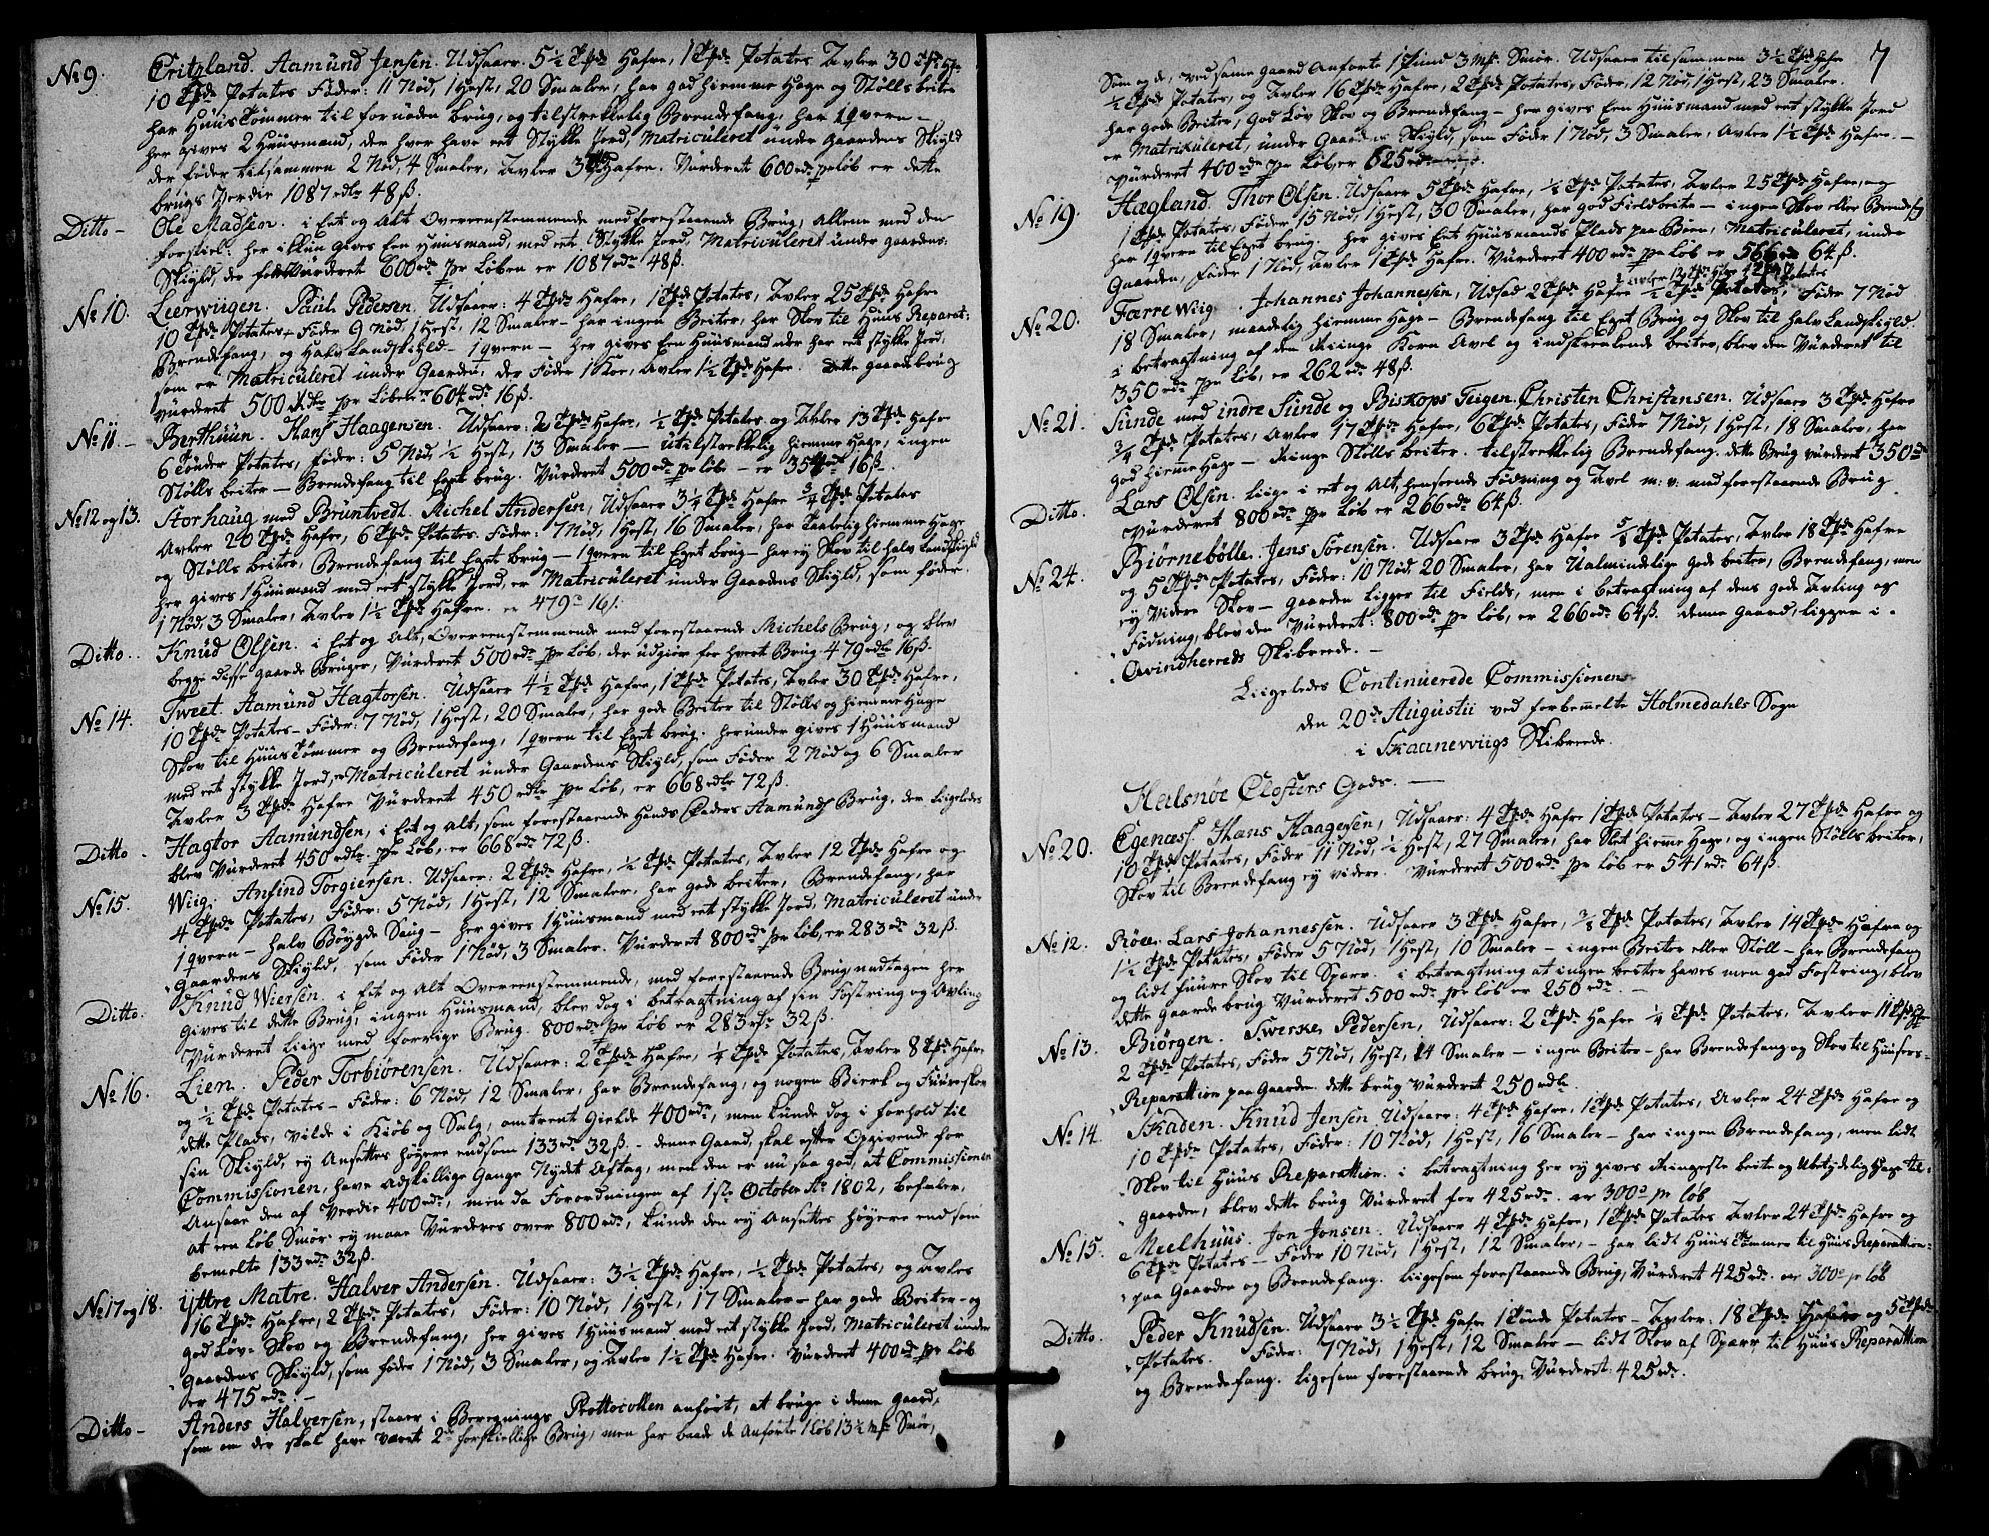 No 9. Fritzland. Aamund Jensen. Udsaaer: 5½ Tpde Hafre, 1 Tpde Potates Avler 30 Tpde Hfr
10 Tpde Potates Føder: 11 Nød, 1 Hest, 20 Smaler, har god hiemme Hage og Støllsbeite
har Huus Tømmer til fornøden brug, og tilstrekkelig Brendefang, har 1 qvern -
her gives 2 Huusmænd, der hver have eet Stykke Jord, Matriculeret under Gaardens Skyld
der føder tilsammen 2 Nød, 4 Smaler, Avler 3 Tpde Hafre. Vurderet 600 rdr pr Løb er dette
brugs Verdie 1087 rdlr 48 ß.
Ditto - Ole Madsen. i Eet og Alt Overeenstemmende med forestaaende Brug, allene med den
forskiel: her ikkun gives Een Huusmand, med eete Stykke Jord, Matriculeret under gaardens
Skyld, der føder Vurderet 600 rdr pr Løben er 1087 rdr 48 ß.
No 10. Leerwiigen. Paul Pedersen. Udsaaer: 4 Tpde Hafre, 1 Tpde Potates, Avler 25 Tpde Hafre
10 Tpde Potates, Føder 9 Nød, 1 Hest, 12 Smaler - har ingen Beiter, har Skov til Huus Reparat:
Brendefang, og Halv Landskyld - 1 qvern - her gives Een Huusmand der har eet stykke Jord,
som er Matriculeret under Gaarden, der Føder 1 Koe, Avler 1½ Tpde Hafre. Dette gaardebrug
vurderet 500 Rdr pr Løben er 604 rdr 16 ß.
No 11. - Berthuun. Hans Haagensen. Udsaaer: 2 Tpde Hafre, ½ Tpde Potates og Avler 13 Tpde Hafre
6 Tønder Potates, føder: 5 Nød, ½ Hest, 13 Smaler - utilstrekkelig hiemme Hage, ingen
Støllsbeiter - Brendefang til Eget brug. Vurderet 500 rdr pr Løb - er 354 rdr 16 ß.
No 12 og 13. Storhaug med Bruntvedt. Michel Andersen, Udsaaer 3¼ Tpde Hafre ¾ Tpde Potates
Avler 20 Tpde Hafre, 6 Tpde Potates. Føder: 7 Nød, 1 Hest, 16 Smaler, har Taalelig hiemme Hage
og Støllsbeiter, Brendefang til Eget brug - 1 qvern til Eget brug - har ey Skov til halv Landskyld
her gives 1 Huusmand med eet stykke Jord, er Matriculeret under Gaardens Skyld, som føder
1 Nød, 3 Smaler, Avler 1½ Tpde Hafre. er 479 - 16 ß.
Ditto. Knud Olsen. i Eet og Alt, Overeenstemmende med forestaaende Michels Brug, og blev
begge disse gaarde Bruger, Vurderet 500 rdr pr Løb, der udgiør for hvert Brug 479 rdlr 16 ß.
No 14. Tweet. Aamund Hagtorsen. Udsaaer 4½ Tpde Hafre, 1 Tpde Potates, Avler 30 Tpde Hafre,
10 Tpde Potates - Føder: 7 Nød, 1 Hest, 20 Smaler, har gode Beiter til Støls og hiemme Hage
Skov til Huus Tømmer og Brendefang, 1 qvern til Eget brug. herunder gives 1 Huusmand
med eet stykke Jord, Matriculeret under Gaardens Skyld, som Føder 2 Nød og 6 Smaler
Avler 3 Tpde Hafre Vurderet 450 rdlr pr Løb, er 668 rdlr 72 ß.
Ditto. Hagtor Aamundsen, i Eet og Alt, som forestaaende Hands Faders Aamunds Brug, der Liigeledes
blev Vurderet 450 rdlr pr Løb, er 668 rdr 72 ß.
No 15. Wiig. Anfind Torgiersen. Udsaaer: 2 Tpde Hafre, ¼ Tpde Potates, Avler 12 Tpde Hafre og
4 Tpde Potates, Føder: 5 Nød, 1 Hest, 12 Smaler, har gode beiter, Brendefang, har
1 qvern - halv Bøygde Saug - her gives 1 Huusmand med eet stykke Jord, Matriculeret under
Gaardens Skyld, som Føder 1 Nød, 3 Smaler. Vurderet 800 rdr pr Løb, er 283 rdr 32 ß.
Ditto. Knud Wiersen. i Eet og Alt Overeenstemmende, med forestaaende Brug, undtagen her
gives til dette Brug, ingen Huusmand, blev dog i betragtning af sin Fostring og Avling
Vurderet liige med forrige Brug. 800 rdr pr Løb er 283 rdr 32 ß.
No 16. Lien. Peder Torbiørensen. Udsaaer: 2 Tpde Hafre, ¼ Tpde Potates, Avler 8 Tpde Hafre
og ½ Tpde Potates - Føder: 6 Nød, 12 Smaler, har Brendefang, og nogen Bierk og Fuureskov
dette Plads, vilde i Kiøb og Salg, omtrent Gielde 400 rdr, men kunde dog i forhold til
sin Skyld, ey Ansettes høyere end som 133 rdr 32 ß. - denne Gaard, skal efter Opgivende for
Commissionen, have adskillige Gange Nydt Aftag, men den er nu saa god, at Commissionen
Ansaae den af Verdie 400 rdr, men da Forordningen af 1ste October Ao 1802, befaler,
at een Løb Smør ey maae Vurderes over 800 rdr, kunde den ey Ansettes høyere end som
bemelte 133 rdr 32 ß.
No 17 og 18. Ÿttre Matre. Halver Andersen. Udsaaer: 3½ Tpde Hafre, ½ Tpde Potates, og Avler
16 Tpde Hafre, 2 Tpde Potates, Føder: 10 Nød, 1 Hest, 17 Smaler - har gode Beiter - og
god Løv Skov og Brendefang, her gives 1 Huusmand med eet stykke Jord, Matriculeret under
Gaardens Skyld, som føder 1 Nød, 3 Smaler, og Avler 1½ Tpde Hafre. Vurderet 400 rdr pr Løb
er 475 rdr -
Ditto - Anders Halversen, staaer i Beregnings Prottocollen anført, at bruge i denne gaard,
som om der skal have været 2de forskiellige Brug, men har baade de Anførte 1 Løb 13½ Mk Smør,
7
Som og de, ved samme gaard Anførte 1 Pund 3 Mk Smør. Udsaaer tilsammen 3½ Tpde Hafre
½ Tpde Potates, og Avler 16 Tpde Hafre, 2 Tpde Potates, Føder, 12 Nød, 1 Hest, 23 Smaler.
har gode Beiter, god Løv Skov og Brendefang - her gives Een Huusmand med eet stykke Jord
er Matriculeret, under Gaardens Skyld, som Føder 1 Nød, 3 Smaler, Avler 1½ Tpde Hafre. -
Vurderet 400 rdr pr Løb, er 625 rdr
No 19. Hægland. Thor Olsen. Udsaaer 5 Tpde Hafre, ½ Tpde Potates, Avler 25 Tpde Hafre, og
1 Tpde Potates, Føder 15 Nød, 1 Hest, 30 Smaler, har god Fieldbeite - ingen Skov eller Brendefg
har 1 qvern til Eget brug. her gives Eet Huusmands Plads paa Børn, Matriculeret, under
Gaarden, Føder 1 Nød, Avler 1 Tpde Hafre. Vurderet 400 rdr pr Løb er 566 rdr 64 ß.
Avler 12 Tpde Hafre Potates
No 20. Farrewiig. Johannes Johannessen, Udsæd 2 Tpde Hafre ½ Tpde Potates, Føder 7 Nød
18 Smaler, maadelig hiemme Hage - Brendefang til Eget Brug og Skov til halv Landskyld.
i betragtning af den Ringe Korn Avel og indskrenkende beiter, blev den Vurderet til
350 rdr pr Løb, er 262 rdr 48 ß.
No 21. Sunde med indre Sunde og Biskops Teigen. Christen Christensen. Udsaaer 3 Tpde Hafre
¾ Tpde Potates, Avler 17 Tpde Hafre, 6 Tpde Potates, Føder 7 Nød, 1 Hest, 18 Smaler, har
god hiemme Hage - Ringe Støllsbeiter. tilstrekkelig Brendefang. dette Brug vurderet 350 rdr
Ditto. Lars Olsen. Liige i eet og Alt, henseende Fødning og Avel m: v: med forestaaende Brug
Vurderet 800 rdr pr Løb er 266 rdr 64 ß.
No 24. Biørnebølle. Jens Sørensen. Udsaaer 3 Tpde Hafre ⅝ Tpde Potates, Avler 18 Tpde Hafre
og 5 Tpde Potates, Føder: 10 Nød, 20 Smaler, har Ualmindelige gode beiter, Brendefang, men
ey Videre Skov - gaarden ligger til Fields, men i betragtning af dens gode Avling og
Fødning, blev den Vurderet: 800 rdr pr Løb, er 266 rdr 64 ß. denne Gaard, ligger i
Qvindherreds Skibrede. -
Liigeledes Continuerede Commissionen
den 20de Augustii ved forbemelte Holmedahls Sogn
i Skaanevviigs Skibreede.
Halsnøe Closters Gods. -
No 20. Egenæss. Hans Haagensen, Udsaaer: 4 Tpde Hafre 1 Tpde Potates - Avler 27 Tpde Hafre og
10 Tpde Potates, Føder 11 Nød, ½ Hest, 27 Smaler, har Slet hiemme Hage, og ingen Støllsbeiter,
Skov til Brendefang ey videre. Vurderet 500 rdr pr Løb er 541 rdr 64 ß.
No 12. Røen. Lars Johannessen. Udsaaer 3 Tpde Hafre, ⅜ Tpde Potates, Avler 14 Tpde Hafre og
1½ Tpde Potates, Føder 5 Nød, 1 Hest, 10 Smaler - ingen Beiter eller Støll - har Brendefang
og lidt Fuure Skov til Sperr. i betragtning at ingen beiter haves men god Fostring, blev
dette gaarde brug Vurderet 500 rdr pr Løb er 250 rdr. -
No 13. Biørgen. Swerke Pedersen, Udsaaer: 2 Tpde Hafre ¼ Tpde Potates, Avler 11 Tpde Hfr
2 Tpde Potates, Føder 5 Nød, 1 Hest, 14 Smaler - ingen Beiter - har Brendefang og Skov til Huuses
Reparattion paa Gaarden. dette brug Vurderet 250 rdlr.
No 14. Skaden. Knud Jensen. Udsaaer: 4 Tpde Hafre, 1 Tpde Potates, Avler 24 Tpde Hafre og
10 Tpde Potates, Føder: 10 Nød, 1 Hest, 16 Smaler - har ingen Brendefang, men lidt
Skov til Huus Reparattion. i betragtning her ey gives Ringeste beite og Ubetydelig Hage til
gaarden, blev dette brug Vurderet for 425 rdr. er 300 rdr pr Løb
No 15. Meelhuus. Jon Jonsen. Udsaaer 4 Tpde Hafre, 1 Tpde Potates Avler 24 Tpde Hafre og
6 Tpde Potates - Føder 10 Nød, 1 Hest, 12 Smaler, - har lidt Huus Tømmer til Huus Reparattion
paa Gaarden og Brendefang. Liigesom forestaaende Brug, Vurderet 425 rdr. er 300 rdr pr Løb
Ditto. Peder Knudsen. Udsaaer 3½ Tpde Hafre 1 Tønde Potates - Avler: 18 Tpde Hafre og 5 Tpde
Potates. Føder: 7 Nød, 1 Hest, 12 Smaler - lidt Skov af Sperr til Huus Reparattion
og Brendefang. Ligesom forestaaende brug, Vurderet 425 rdr.